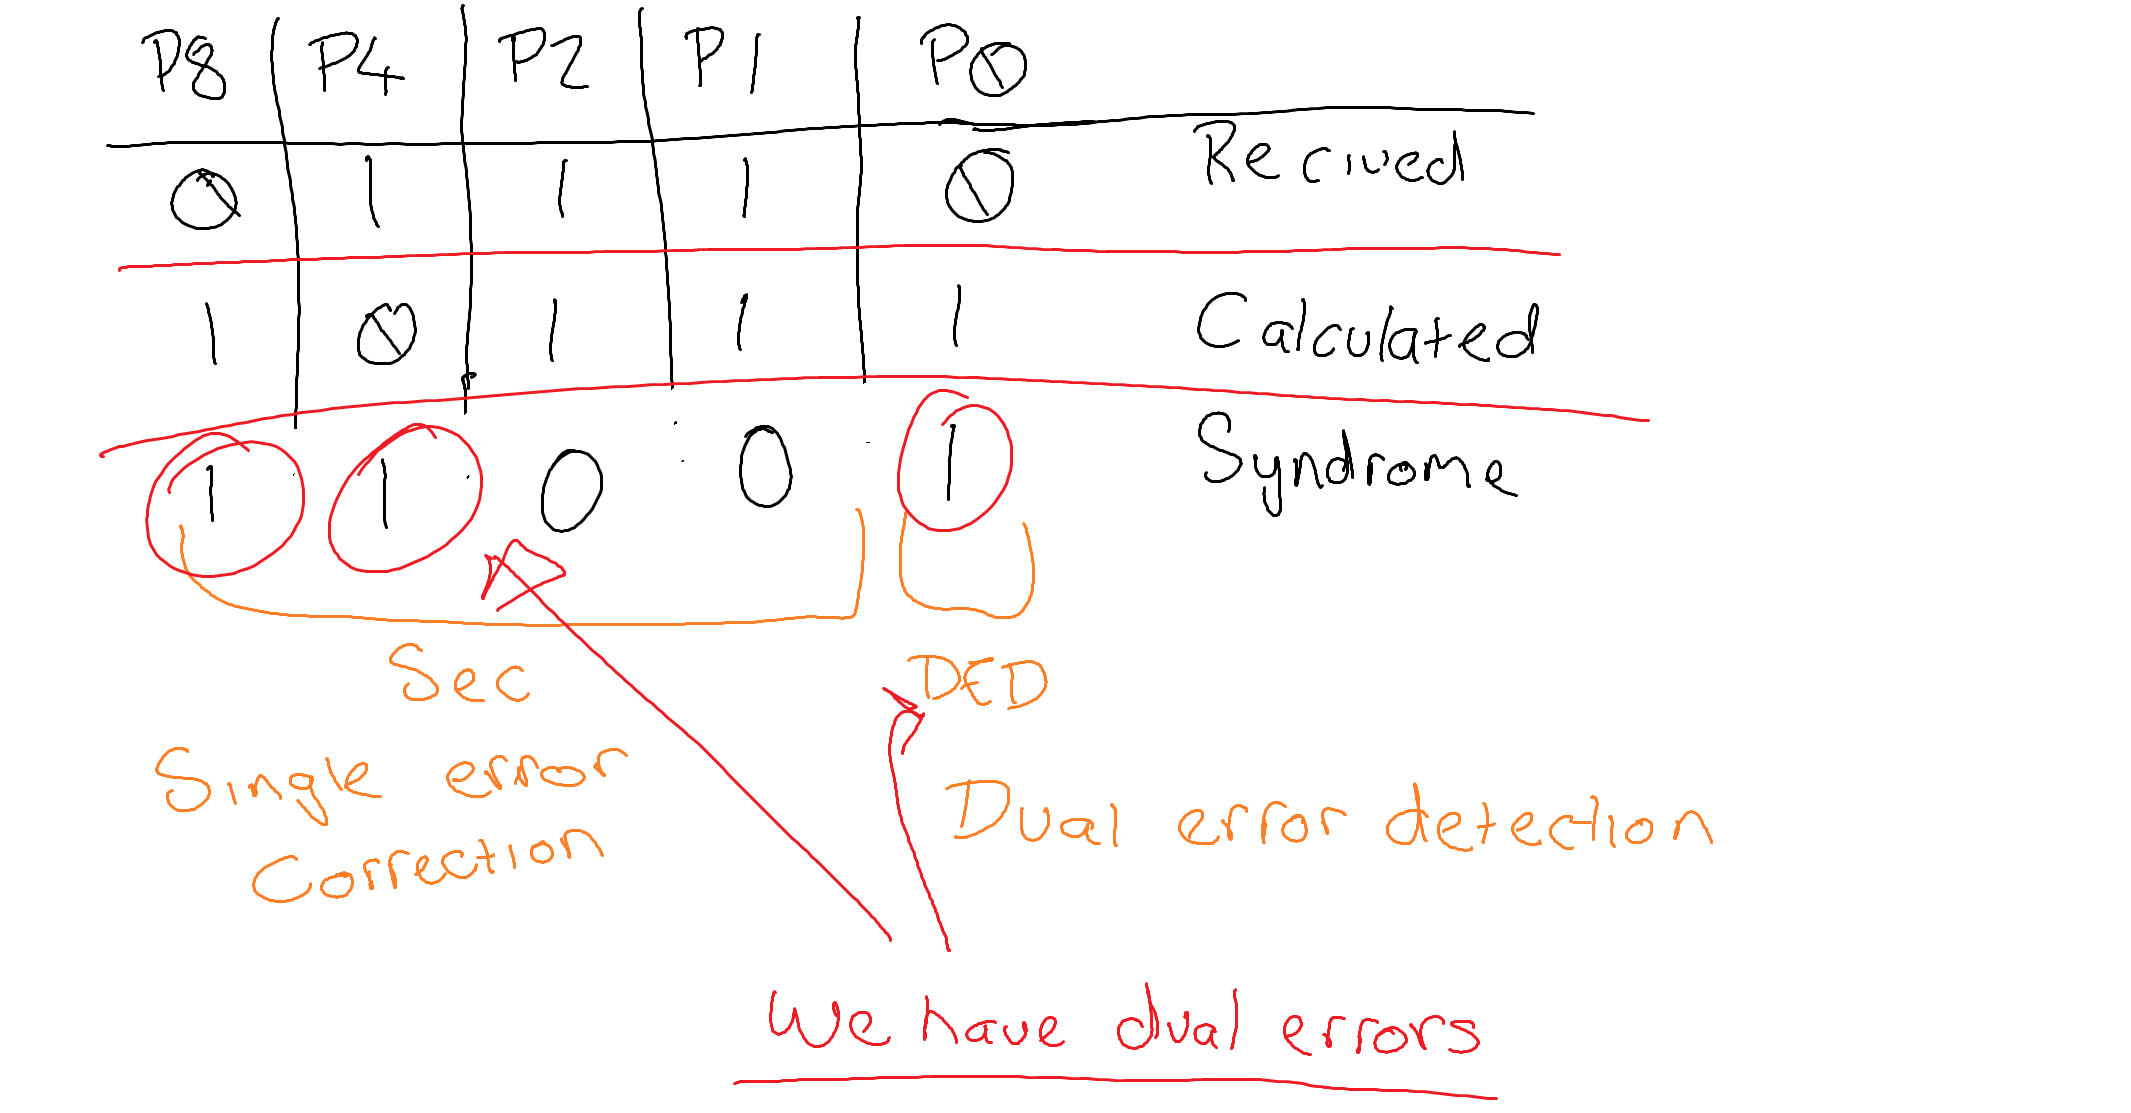 P8 P4 P2 P1 P0
0 1 1 1 0 Recived
1 0 1 1 1 Calculated
1 1 0 0 1 Syndrome
Sec DED
Single error
Correction
Dual error detection
We have dual errors